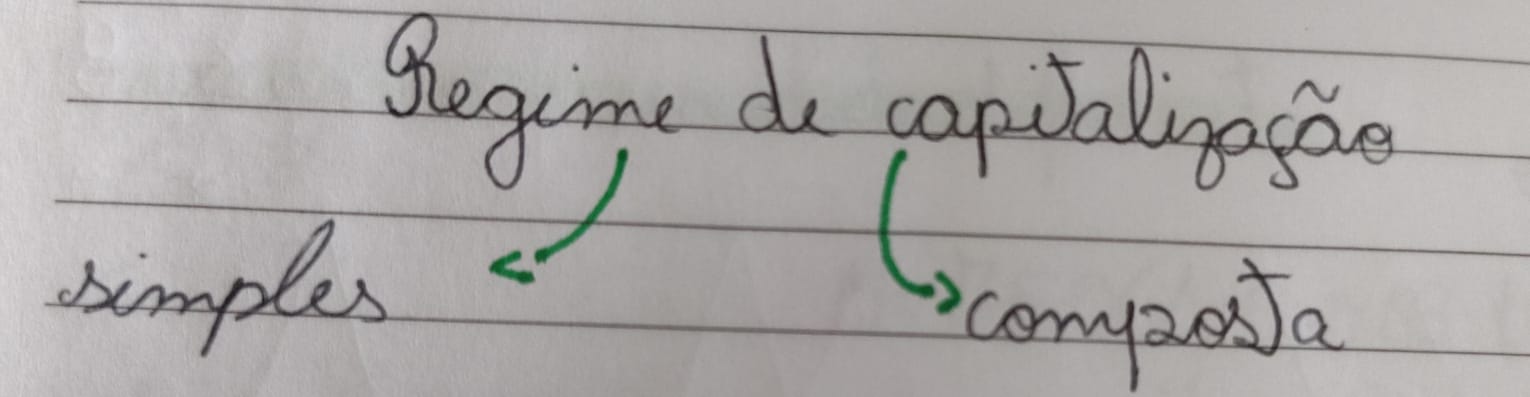 Regime de capitalização
simples
composta